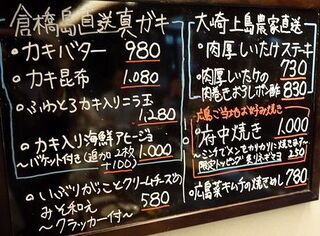 倉橋島直送真ガキ
・カキバター 980
・カキ昆布 1.080
・ふわとろカキ入りニラ玉
1,280
・カキ入り海鮮アヒージョ
〜バケット付き(追加2枚+100) 1.000
・いぶりがっことクリームチーズの
みそ和え 580
〜クラッカー付〜
大崎上島農家直送
・肉厚しいたけステーキ
730
・肉厚しいたけの
肉巻きおろしポン酢 830
広島ご当地お好み焼き
・府中焼き 1.000
〜ミンチでメンをカリカリに焼きます〜
限定トッピング 炙りねぎマヨ 250
・広島菜キムチの焼きめし 780